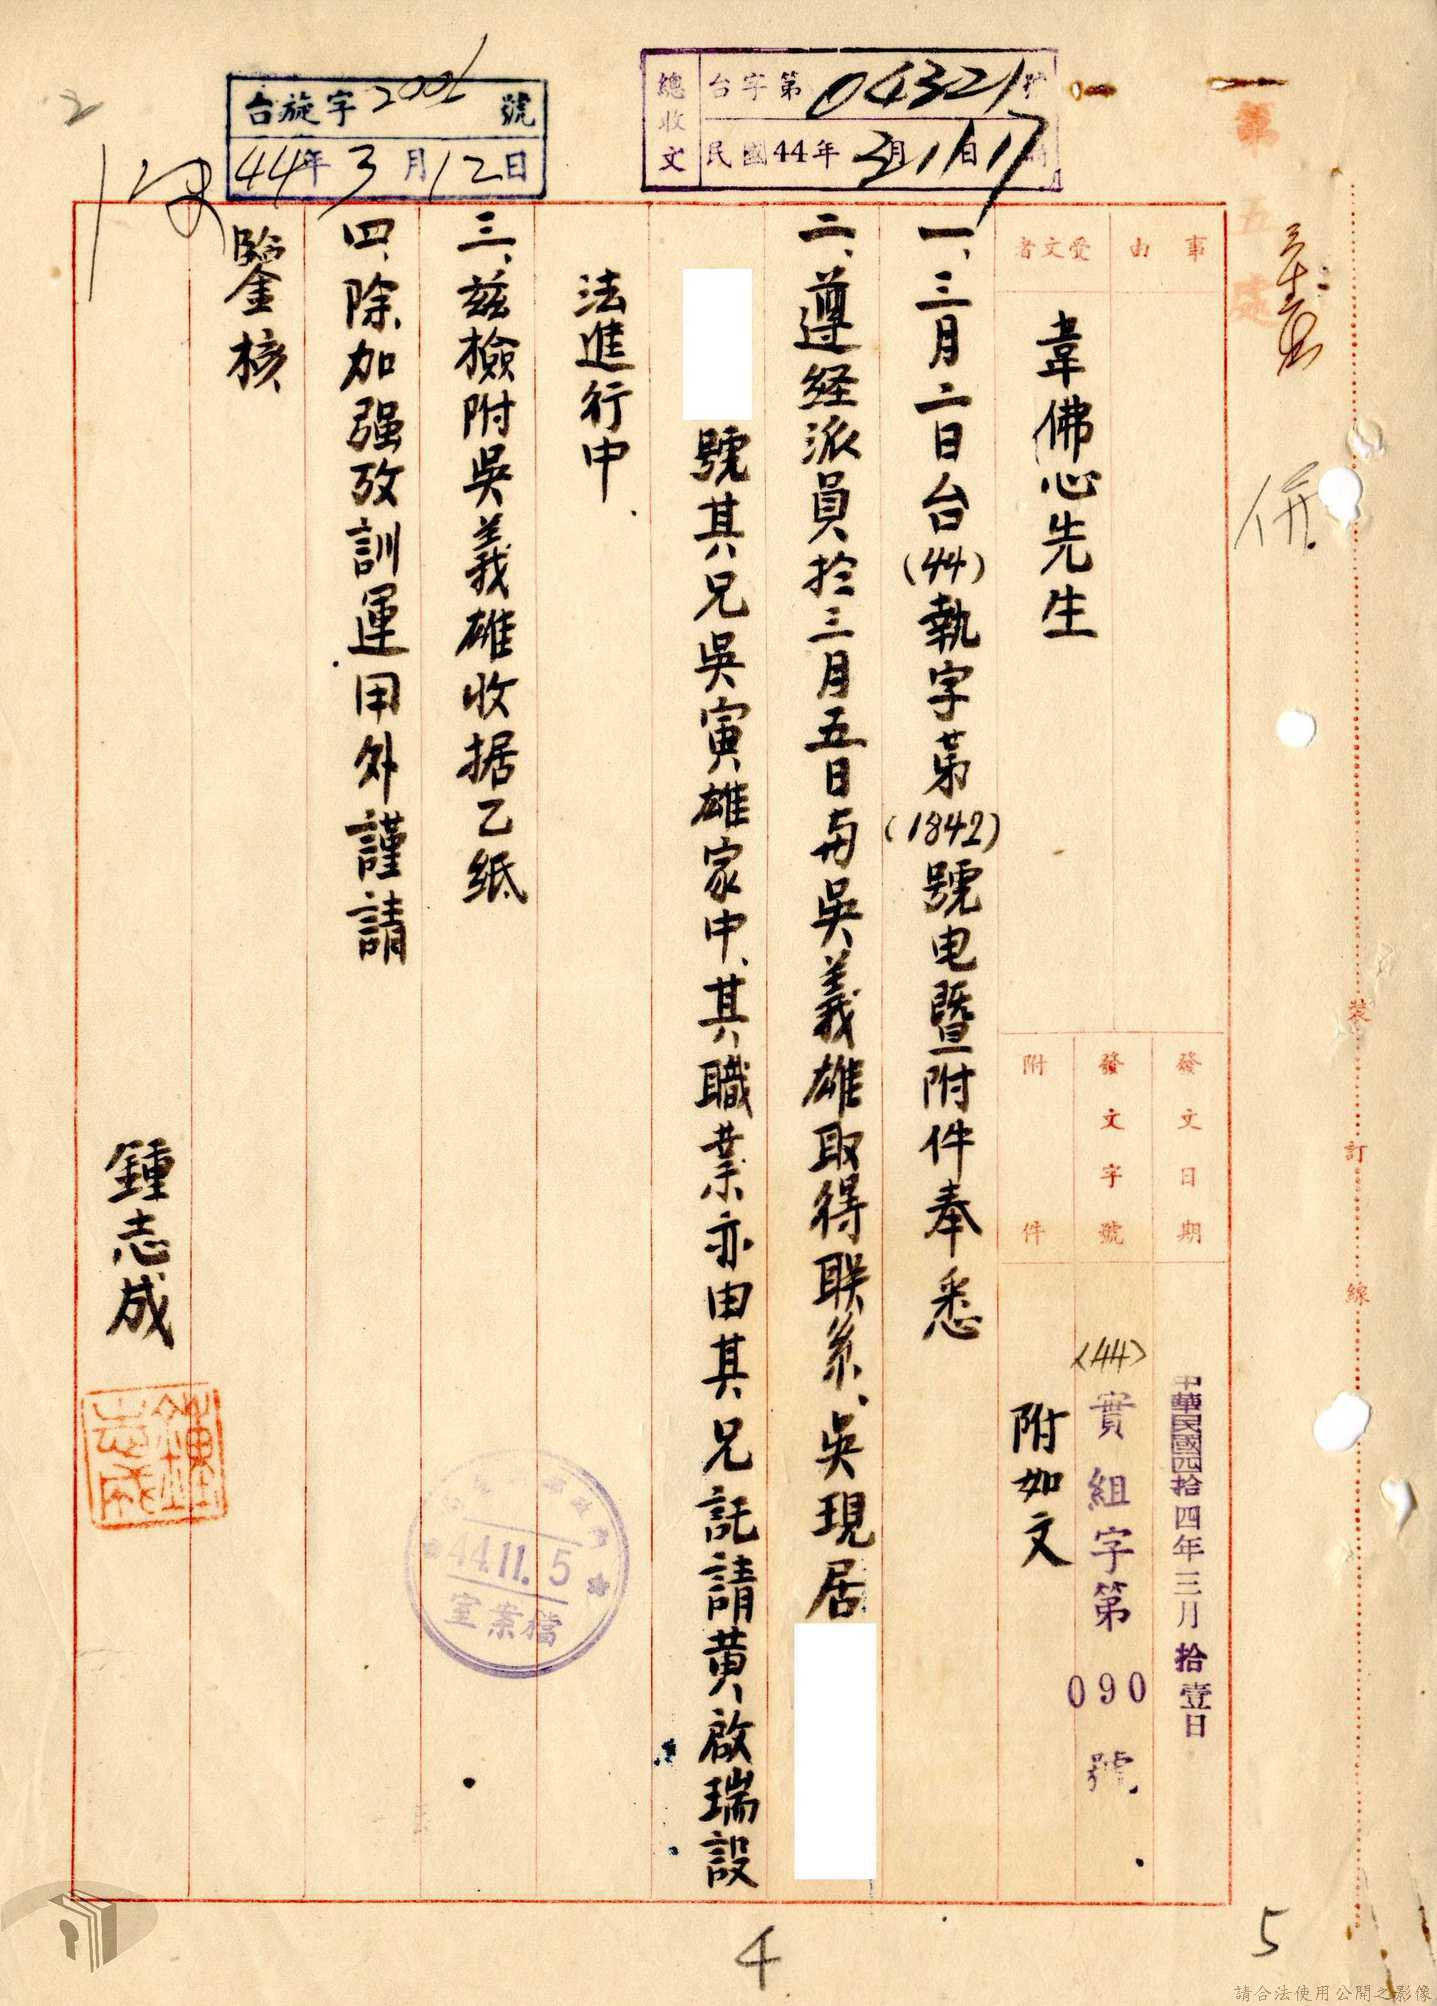 總收文
台字第04321號
民國44年3月11日17時
台施字2006號
44年3月12日
第五處
事由
受文者
韋佛心先生
發文日期
中華民國四拾四年三月拾壹日
發文字號
(44)實組字第090號
附件
附如文
一、三月二日台(44)執字第(1842)號电暨附件奉悉
二、遵経派員於三月五日与吳義雄取得联系、吳現居
號其兄吳寅雄家中、其職業亦由其兄託請黄啟瑞設
法進行中
三、兹檢附吳義雄收据乙紙
四、除加强攷訓運用外謹請
鑒核
鍾志成
鍾志成
44.11.5
檔案室
併
裝訂線
2
4
5
請合法使用公開之影像